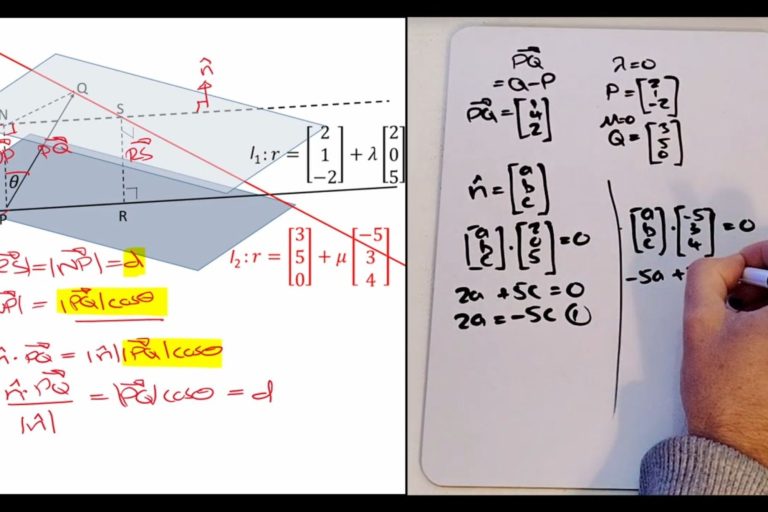 Q
n̂
N
S
NP
PQ⃗
RS⃗
θ
P
R
l₁: r = [2 1 −2] + λ [2 0 5]
l₂: r = [3 5 0] + μ [−5 3 4]
RS⃗| = |NP⃗| = d
NP⃗| = |PQ⃗|cosθ
n̂ · PQ⃗ = |n̂||PQ⃗|cosθ
n̂·PQ⃗ / |n̂| = |PQ⃗|cosθ = d
PQ⃗
= Q-P
PQ⃗ = [1 4 2]
λ=0
P = [2 1 -2]
μ=0
Q = [3 5 0]
n̂ = [a b c]
[a b c] · [2 0 5] = 0
2a + 5c = 0
2a = -5c ①
[a b c] · [-5 3 4] = 0
-5a +